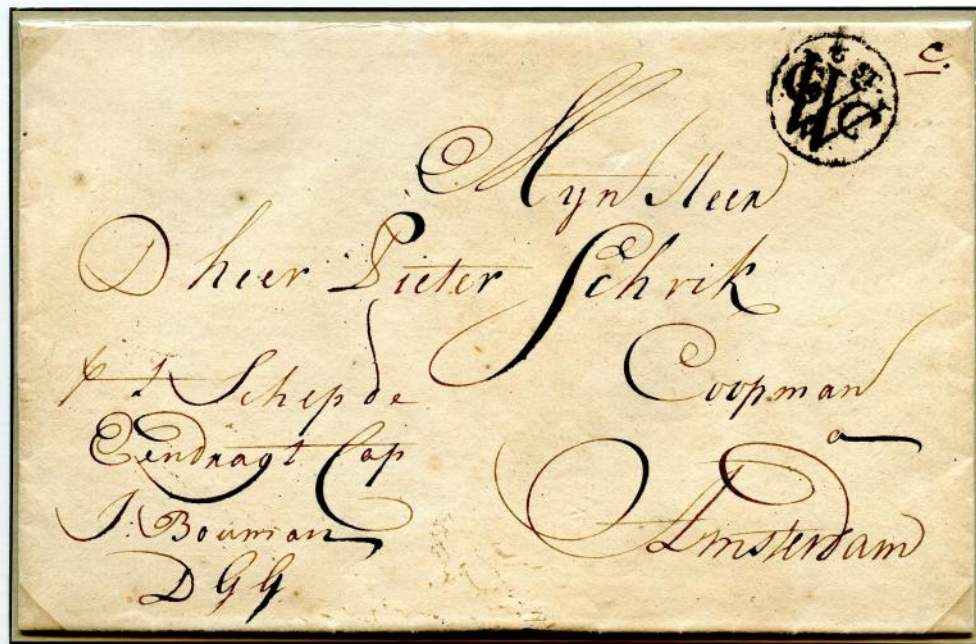 6 ST.
GWC
C.
Myn Heer
Dheer Pieter Schrik
Coopman
a
Amsterdam
p t Schip de
Eendragt Cap
J: Bouman
D G G